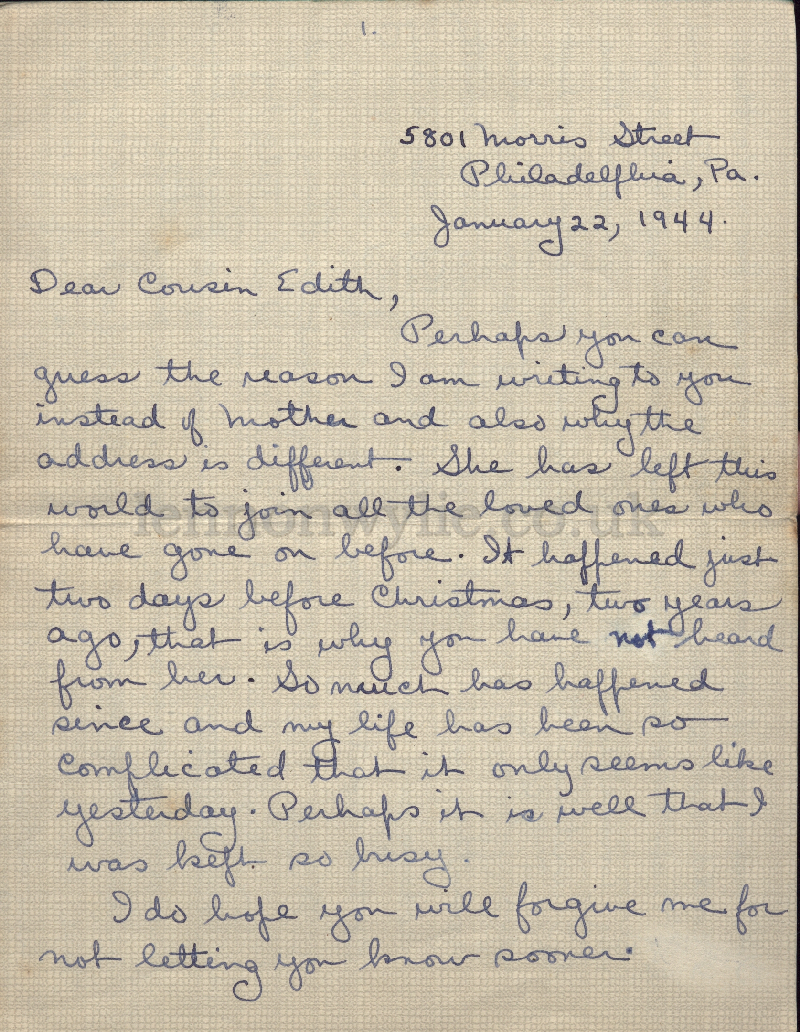 1.
5801 Morris Street
Philadelphia, Pa.
January 22, 1944.
Dear Cousin Edith,
Perhaps you can
guess the reason I am writing to you
instead of Mother and also why the
address is different. She has left this
world to join all the loved ones who
lennonwylie.co.uk
have gone on before. It happened just
two days before Christmas, two years
ago, that is why you have not heard
from her. So much has happened
since and my life has been so
complicated that it only seems like
yesterday. Perhaps it is well that I
was kept so busy.
I do hope you will forgive me for
not letting you know sooner.